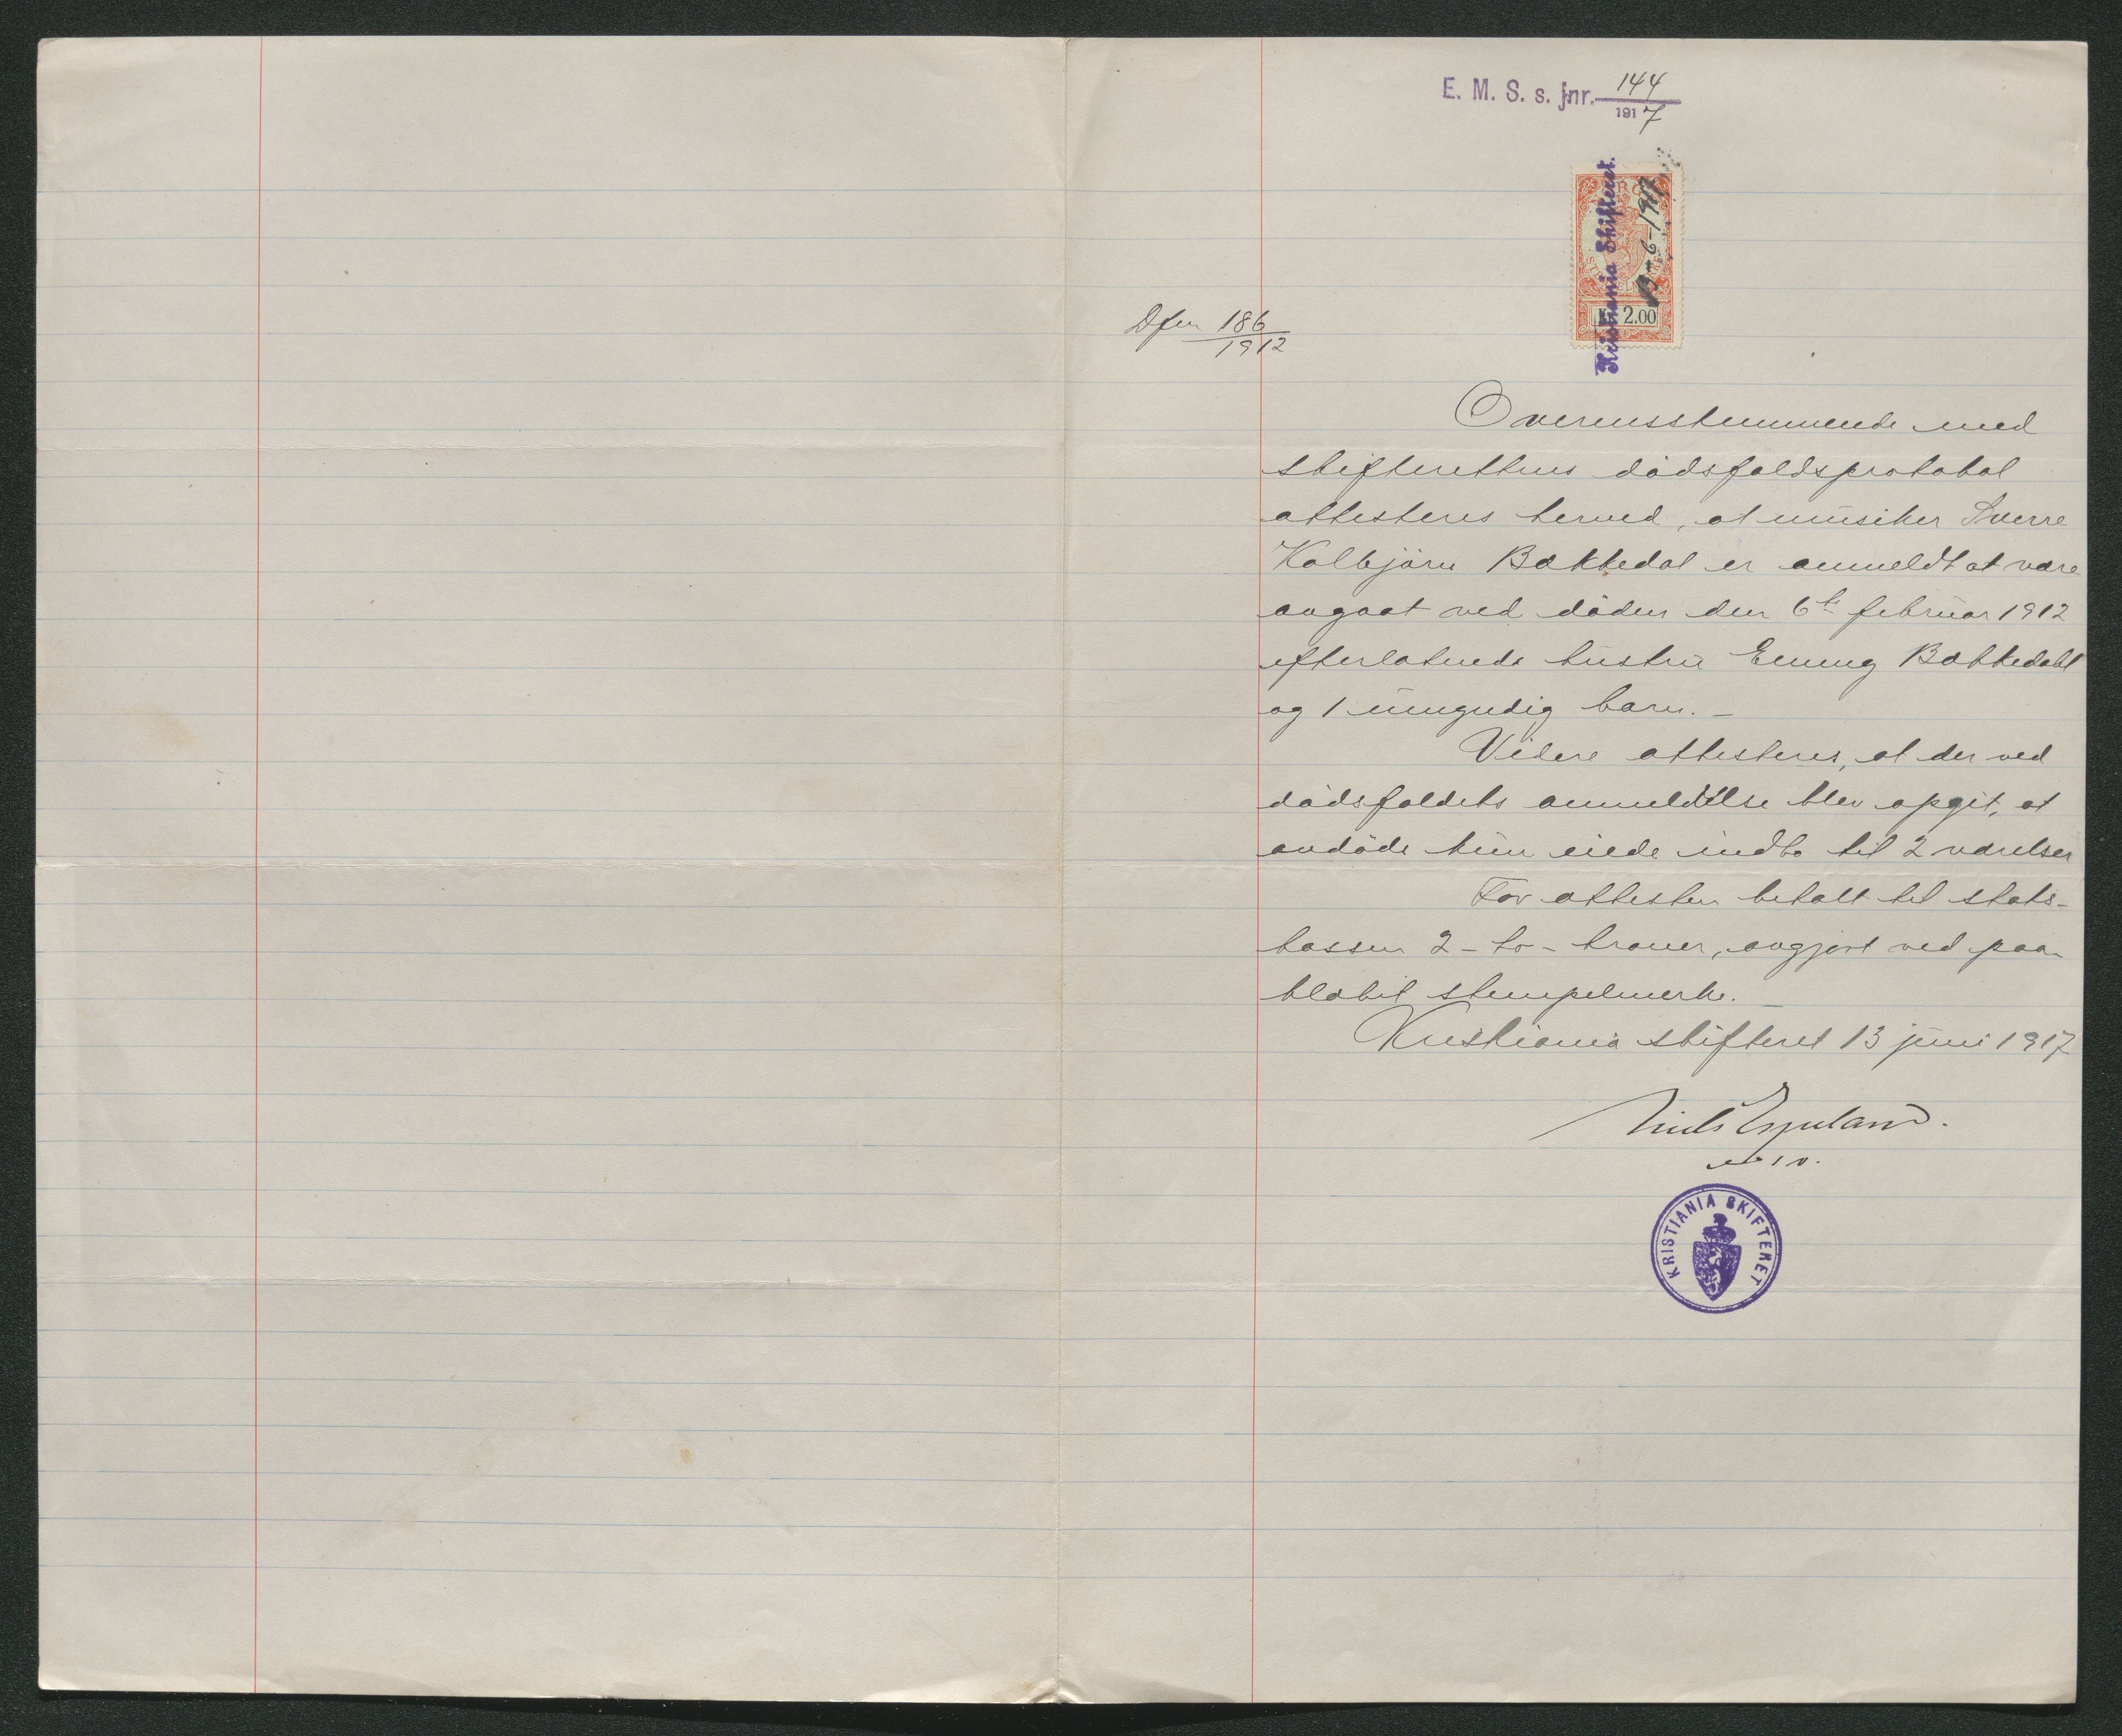 E. M. S. s. jnr. 144
1917
NORGE
Kristiania Skifteret.
13-6-1917
Kr. 2.00
Dfm 186
1912
Overensstemmende med
skifterettens dødsfaldsprotokol
attesteres herved, at musiker Sverre
Kolbjørn Bækkedal er anmeldt at være
avgaat ved døden den 6te februar 1912
efterlatende hustru Emmy Bækkedahl
og 1 umyndig barn. –
Videre attesteres, at der ved
dødsfaldets anmeldelse blev opgit, at
avdøde kun eiede indbo til 2 værelser
For attesten betalt til stats-
kassen 2 - to - kroner, avgjort ved paa-
klæbet stempelmerke. –
Kristiania skifteret 13 juni 1917
Niels
KRISTIANIA SKIFTERET